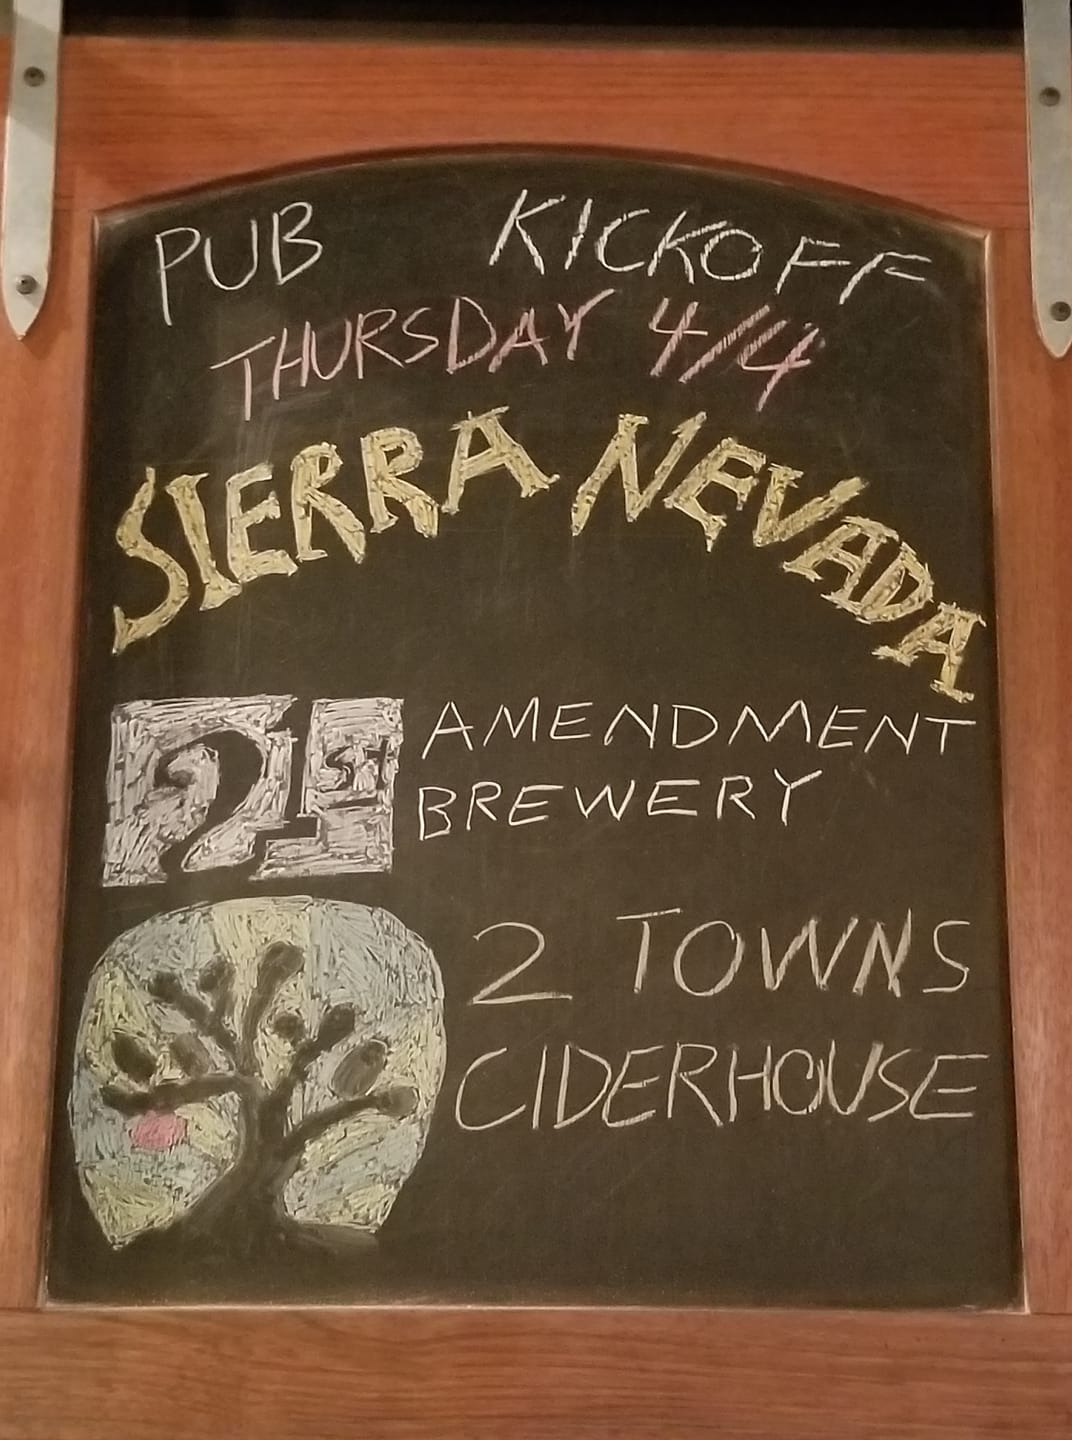 PUB KICKOFF
THURSDAY 4/4
SIERRA NEVADA
21st AMENDMENT
BREWERY
2 TOWNS
CIDERHOUSE